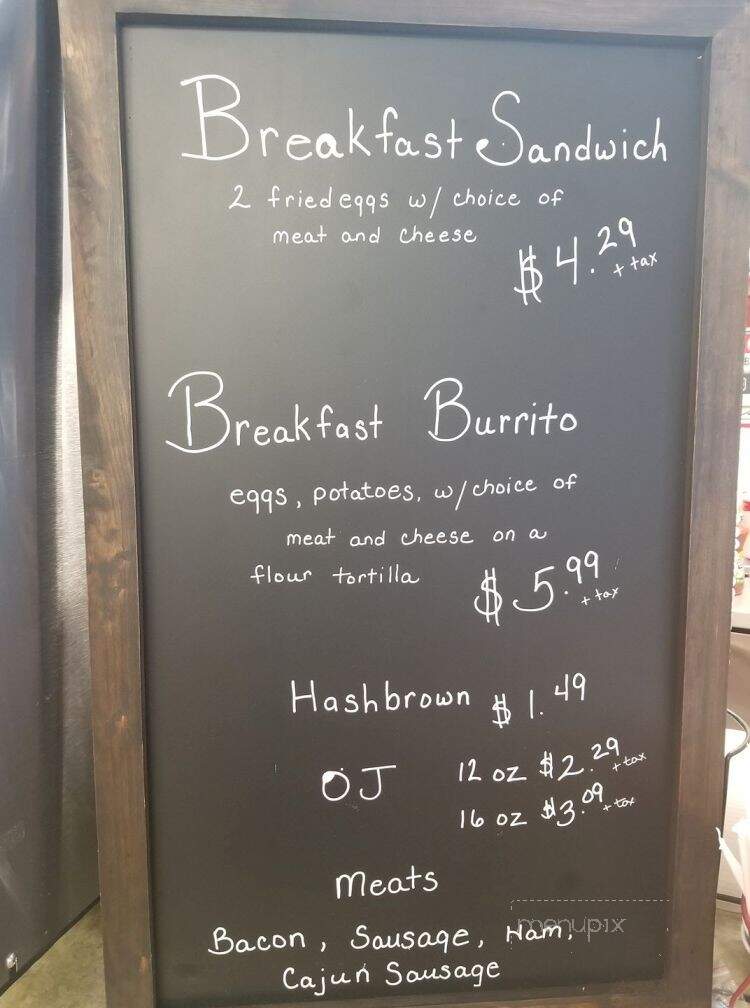 Breakfast Sandwich
2 fried eggs w/ choice of
meat and cheese
$4.29
+ tax
Breakfast Burrito
eggs, potatoes, w/choice of
meat and cheese on a
flour tortilla
$5.99
+ tax
Hashbrown $1.49
OJ 12 oz $2.29 + tax
16 oz $3.09 + tax
Meats
Bacon, Sausage, Ham,
menupix
Cajun Sausage